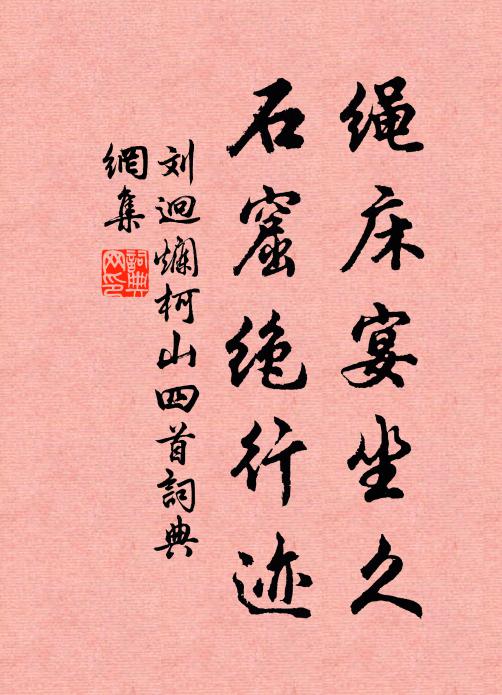 绳床宴坐久
石窟绝行迹
刘迥爛柯山四首詞典
網集
詞典网印